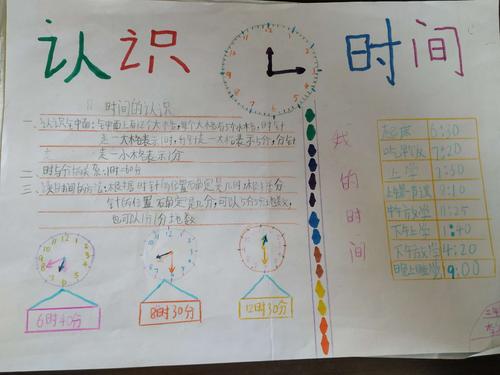 认识时间
时间的认识
一、认识钟面：钟面上有12个大格，每个大格有5个小格，时针
走一大格表示1时，分针走一大格表示5分，分针
走一小格表示1分
二、时与分的关系：1时=60分
三、读时间的方法：根据时针的位置确定是几时，根据分
针的位置确定是几分，可以5分5分地数，
也可以1分1分地数
6时40分
8时30分
12时30分
我的时间
起床 6:30
吃早饭 7:20
上学 7:50
8:10
中午放学 11:25
下午上学 1:40
下午放学 4:20
晚上睡觉 9:00